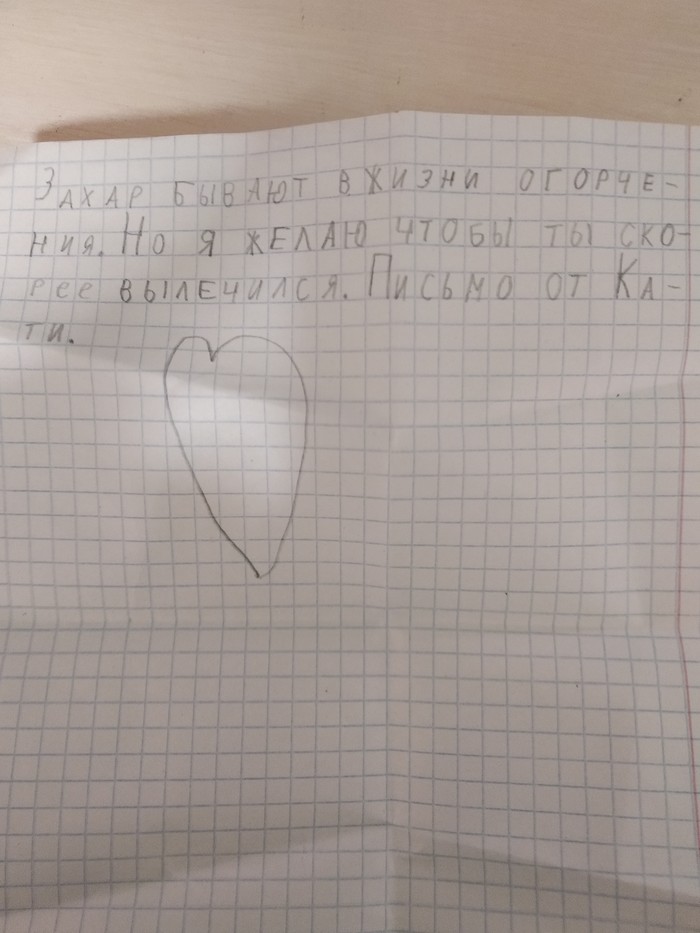 Захар бывают в жизни огорче-
ния. Но я желаю чтобы ты ско-
рее вылечился. Письмо от Ка-
ти.